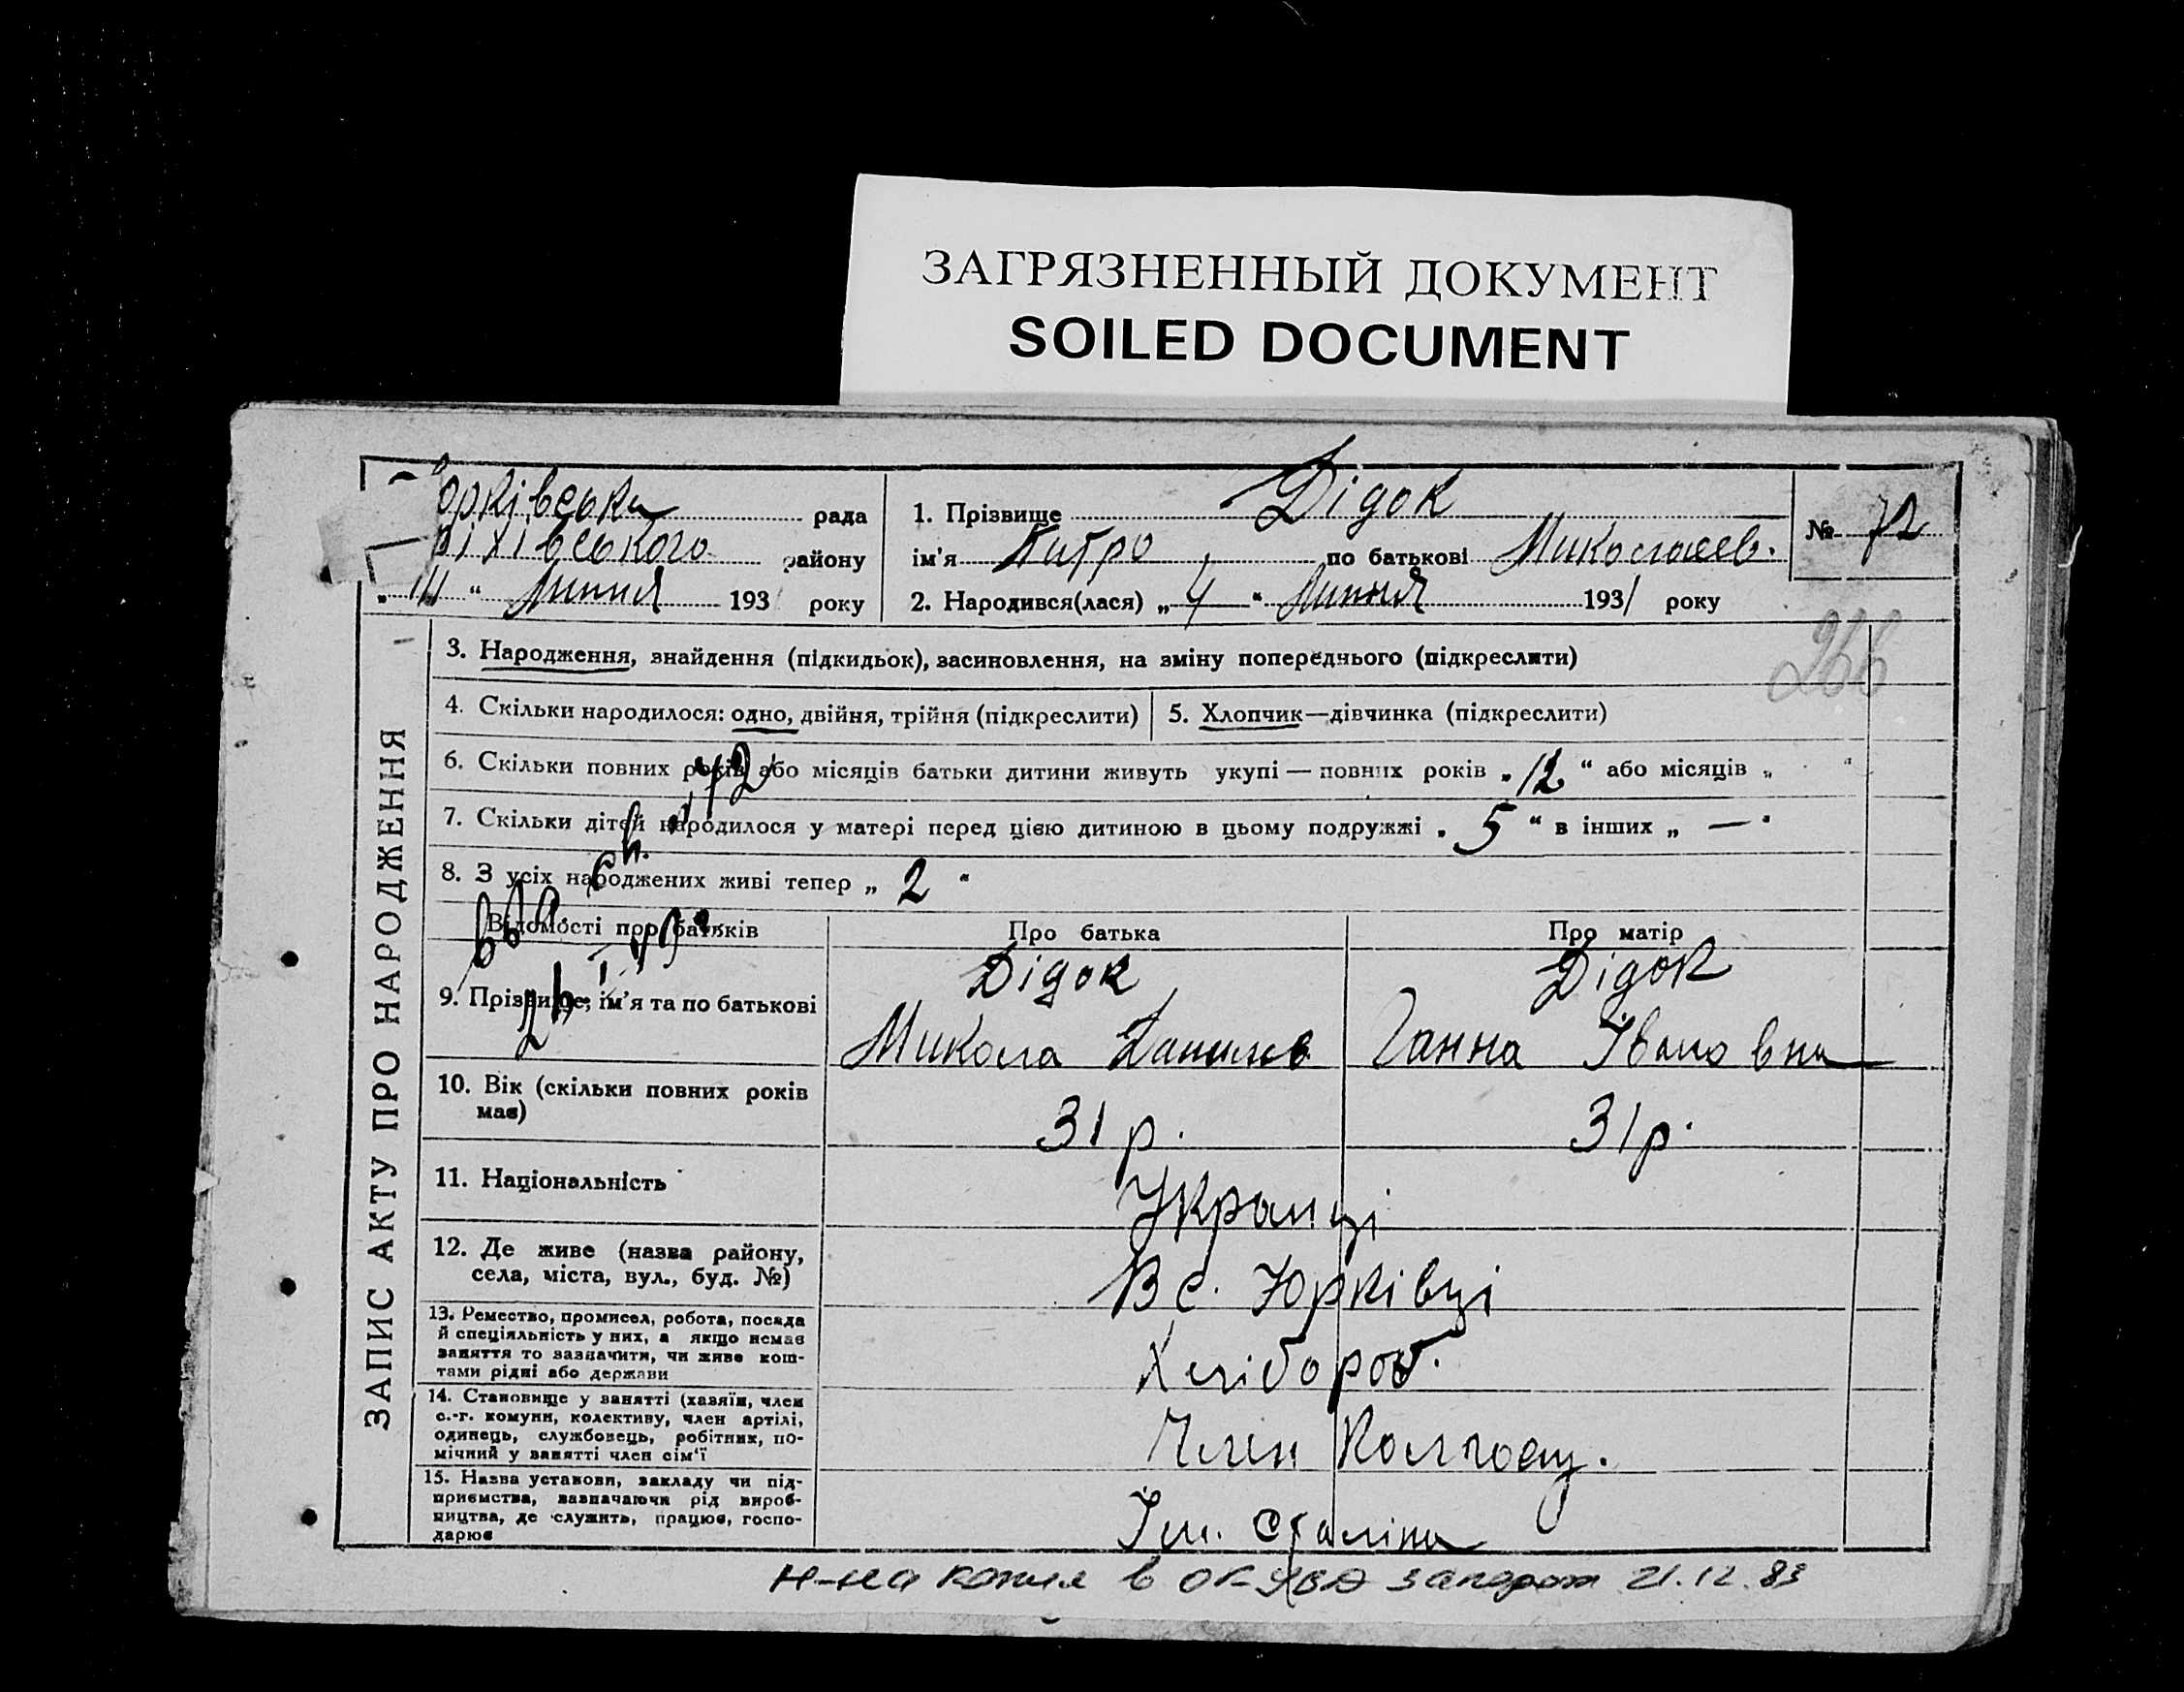 ЗАГРЯЗНЕННЫЙ ДОКУМЕНТ
SOILED DOCUMENT
рада
району
Липня 193 року
1. Прізвище Дідок
ім'я по батькові Миколаєв.
2. Народився(лася) „ 4 “ Липня 1931 року
№ 72
266
ЗАПИС АКТУ ПРО НАРОДЖЕННЯ
3. Народження, знайдення (підкидьок), засиновлення, на зміну попереднього (підкреслити)
4. Скільки народилося: одно, двійня, трійня (підкреслити)
5. Хлопчик—дівчинка (підкреслити)
6. Скільки повних років або місяців батьки дитини живуть укупі — повних років „ 12 “ або місяців „ “
7. Скільки дітей народилося у матері перед цією дитиною в цьому подружжі „ 5 “ в інших „ — “
8. З усіх народжених живі тепер „ 2 “
Відомості про батьків
Про батька
Про матір
9. Прізвище, ім'я та по батькові
Дідок
Микола Данилов
Дідок
Ганна Івановна
10. Вік (скільки повних років має)
31 р.
31 р.
11. Національність
Українці
12. Де живе (назва району,
села, міста, вул., буд. №)
В с. Юрківці
13. Ремество, промисел, робота, посада
й спеціяльність у них, а якщо немає
заняття то зазначити, чи живе кош-
тами рідні або держави
Хлібороб.
14. Становище у занятті (хазяїн, член
с.-г. комуни, колективу, член артілі,
одинець, службовець, робітник, по-
мічний у занятті член сім'ї
Член Колгоспу.
15. Назва установи, закладу чи під-
приємства, зазначаючи рід вироб-
ництва, де служить, працює, госпо-
дарює
Ім. Сталіна
копия в 21.12.83